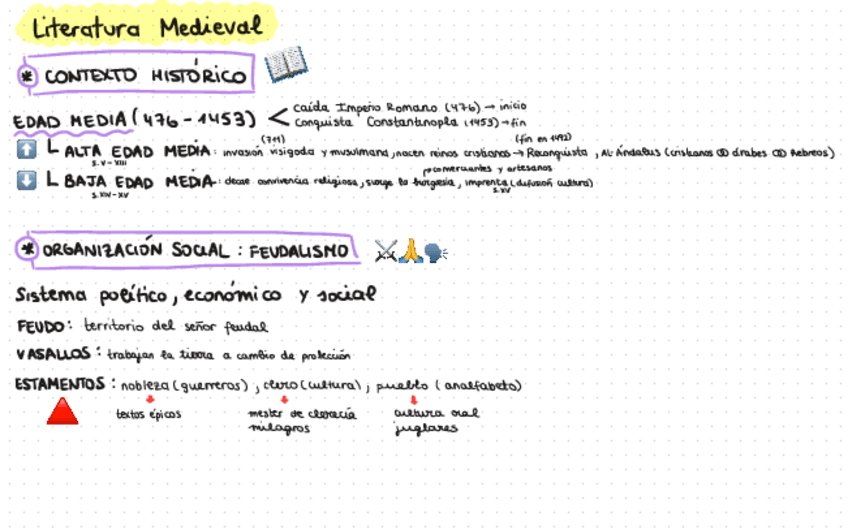 Literatura Medieval
* CONTEXTO HISTÓRICO
EDAD MEDIA (476-1453) < caída Imperio Romano (476) → inicio
conquista Constantinopla (1453) → fin
(711) (fin en 1492)
ALTA EDAD MEDIA: invasión visigoda y musulmana, nacen reinos cristianos → Reconquista, Al-Ándalus (cristianos árabes hebreos)
S.V-XIII
comerciantes y artesanos
BAJA EDAD MEDIA: decae convivencia religiosa, surge la burguesía, imprenta (difusión cultura)
S.XIV-XV S.XV
* ORGANIZACIÓN SOCIAL: FEUDALISMO
Sistema político, económico y social
FEUDO: territorio del señor feudal
VASALLOS: trabajan la tierra a cambio de protección
ESTAMENTOS: nobleza (guerreros), clero (cultura), pueblo (analfabeto)
textos épicos mester de clerecía cultura oral
milagros juglares